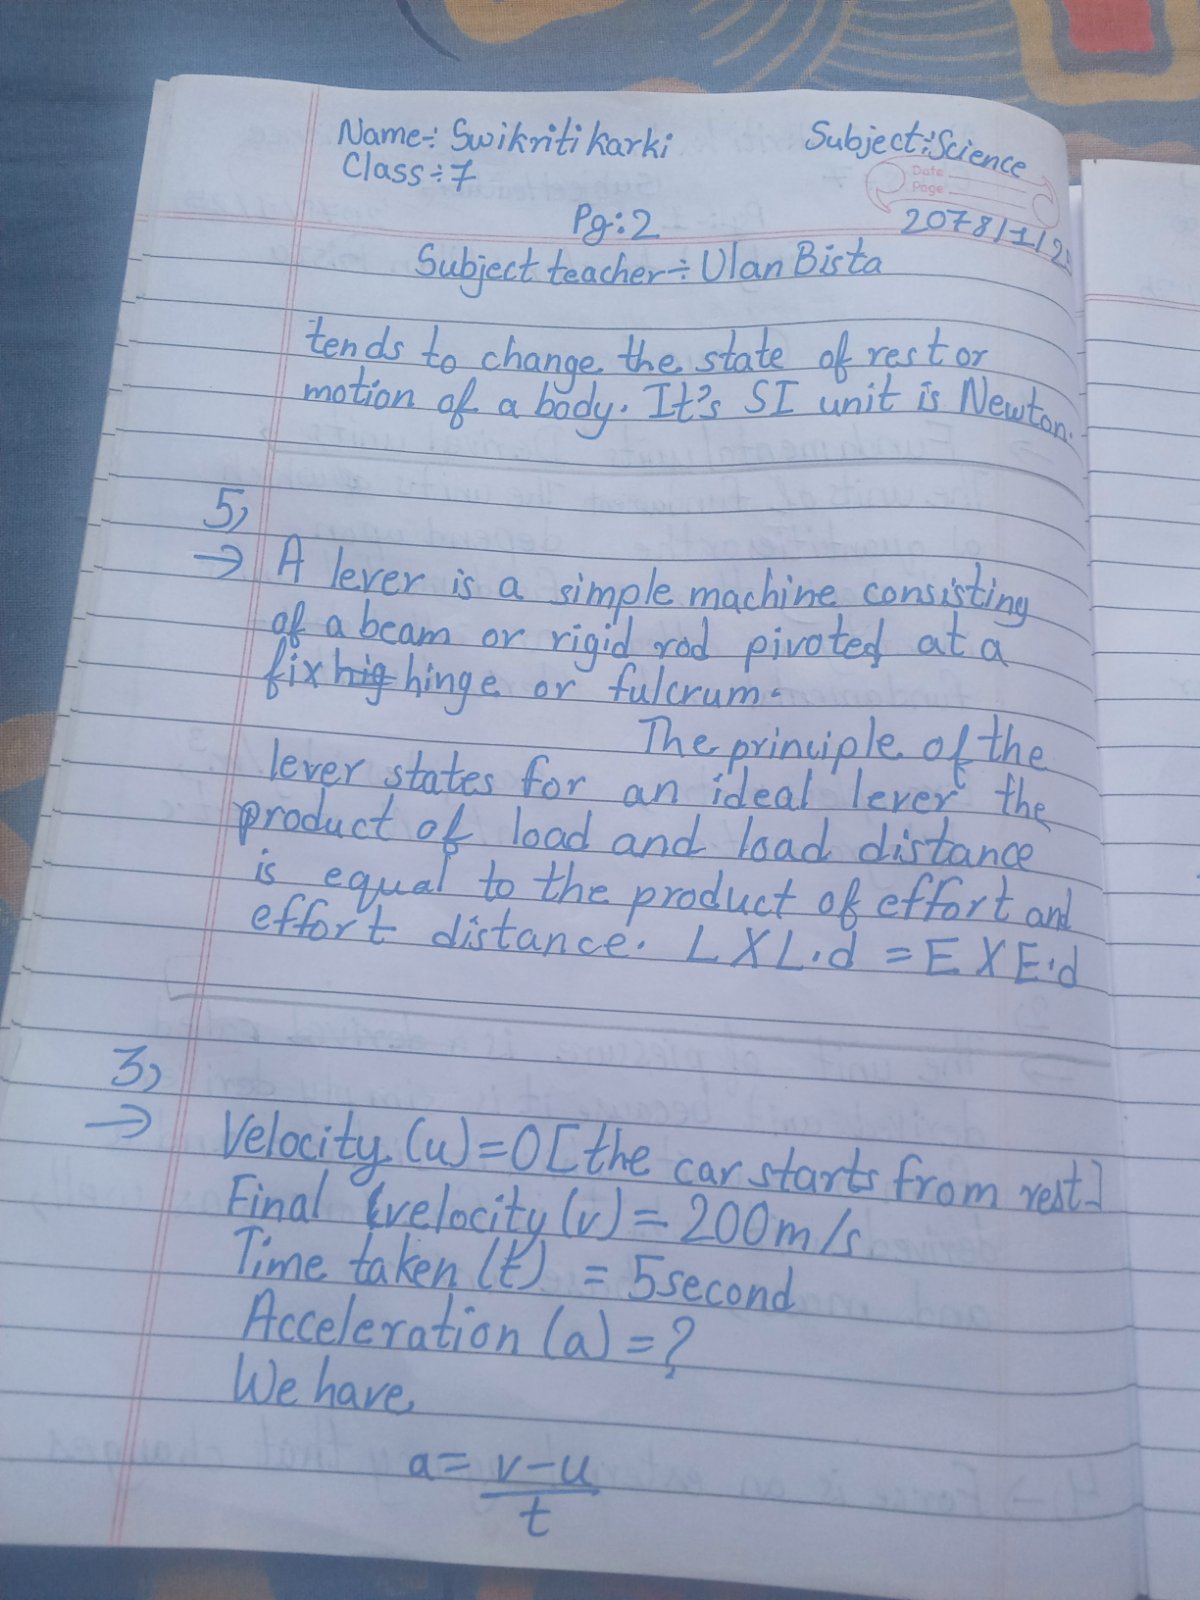 Name÷ Swikriti karki
Subject÷Science
Class÷7
Date
Page
Pg:2
2078/1/2
Subject teacher÷ Ulan Bista
tends to change the state of rest or
motion of a body. It's SI unit is Newton.
5,
→ A lever is a simple machine consisting
of a beam or rigid rod pivoted at a
fix hig hinge or fulcrum.
The principle of the
lever states for an ideal lever the
product of load and load distance
is equal to the product of effort and
effort distance. L X L.d = E X E.d
3,
→ Velocity (u)=0[the car starts from rest]
Final (velocity (v) = 200m/s
Time taken (t) = 5second
Acceleration (a) = ?
We have
a= v-u
t